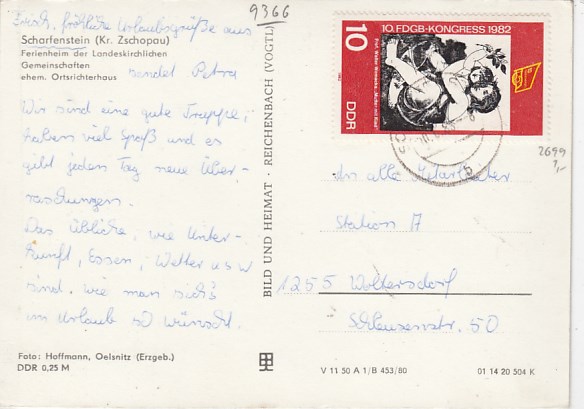 9366
Frisch, fröhliche Urlaubsgrüße aus
Scharfenstein (Kr. Zschopau)
Ferienheim der Landeskirchlichen
Gemeinschaften
ehem. Ortsrichterhaus
sendet Petra
Wir sind eine gute Truppe,
haben viel Spaß und es
gibt jeden Tag neue Über-
raschungen.
Das Übliche, wie Unter-
kunft, Essen, Wetter usw
sind, wie man sich's
im Urlaub so wünscht.
Foto: Hoffmann, Oelsnitz (Erzgeb.)
DDR 0,25 M
BILD UND HEIMAT · REICHENBACH (VOGTL)
10
10. FDGB-KONGRESS 1982
DDR
2699
An alle Mitarbeiter
Station A
1255 Woltersdorf
Schleusenstr. 50
V 11 50 A 1/B 453/80
01 14 20 504 K